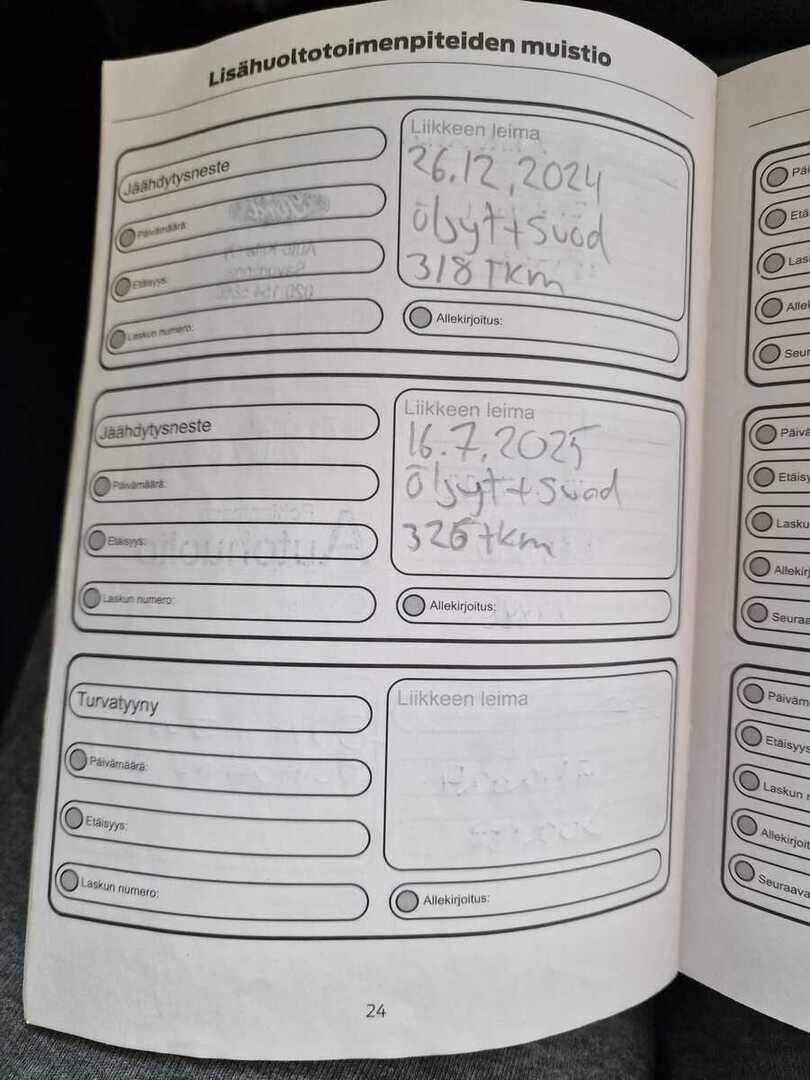 Lisähuoltotoimenpiteiden muistio
Jäähdytysneste
Päivämäärä:
Etäisyys:
Laskun numero:
Liikkeen leima
26.12.2024
Öljyt+suod
318 Tkm
Allekirjoitus:
Jäähdytysneste
Päivämäärä:
Etäisyys:
Laskun numero:
Liikkeen leima
16.7.2025
Öljyt+suod
326 tkm
Allekirjoitus:
Turvatyyny
Päivämäärä:
Etäisyys:
Laskun numero:
Liikkeen leima
Allekirjoitus:
24
Päi
Etä
Las
Allel
Seur
Päivä
Etäisy
Lasku
Allekirj
Seuraa
Päiväm
Etäisyys
Laskun n
Allekirjoit
Seuraava